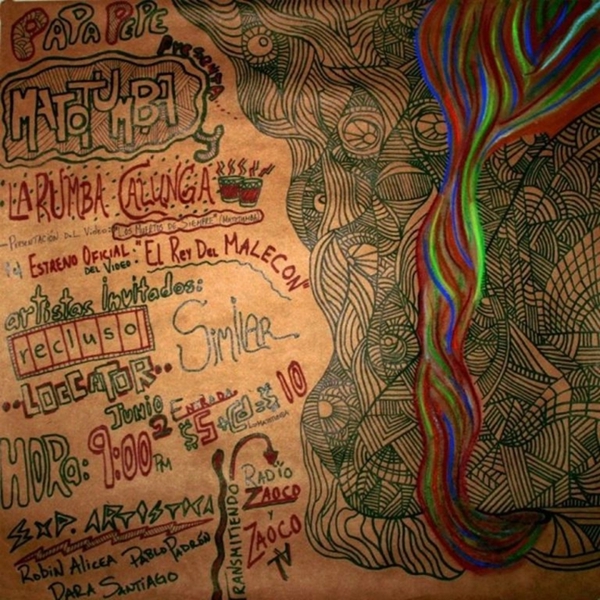 PAPA PEPE
presenta...
MATOTUMBA
y
LA RUMBA CALUNGA
Presentación del Video: "Los Muertos de Siempre" (Matotumba)
y el Estreno Oficial del Video: "El Rey Del MALECON"
artistas invitados:
recluso
Similar
..LOCCATOR..
Junio 2
Entrada
$5 + CD = $10
HORA: 9:00 PM
Exp. ARTISTICA
Robin Alicea Pablo Padrón
Dara Santiago
TRANSMITIENDO
RADIO
ZAOCO
Y
ZAOCO
TV